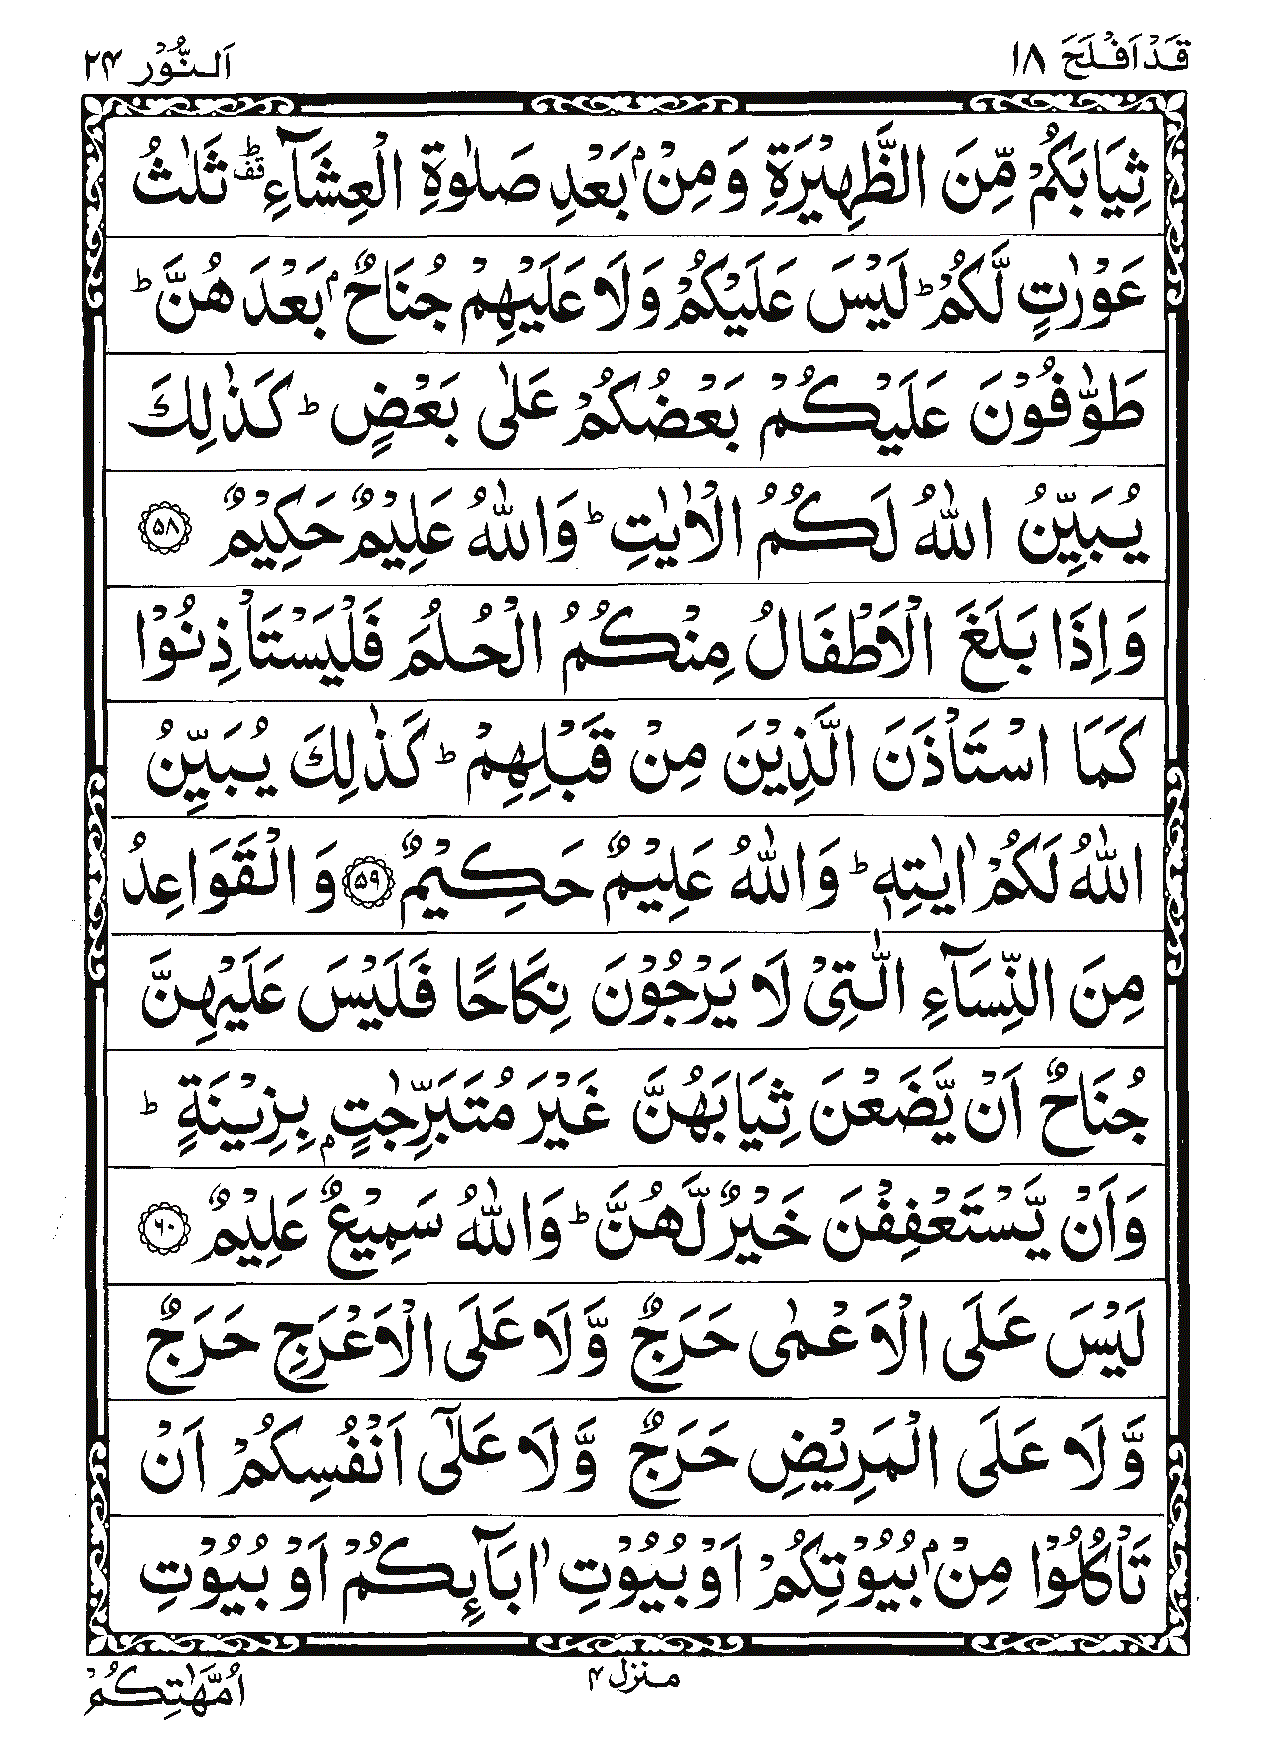 قَدْ اَفْلَحَ ۱۸ اَلنُّوْر ۲۴
ثِيَابَكُمْ مِّنَ الظَّهِيْرَةِ وَمِنْۢ بَعْدِ صَلٰوةِ الْعِشَآءِ ؕ قف ثَلٰثُ
عَوْرٰتٍ لَّكُمْ ؕ لَيْسَ عَلَيْكُمْ وَلَا عَلَيْهِمْ جُنَاحٌۢ بَعْدَهُنَّ ؕ
طَوّٰفُوْنَ عَلَيْكُمْ بَعْضُكُمْ عَلٰى بَعْضٍ ؕ كَذٰلِكَ
يُبَيِّنُ اللّٰهُ لَكُمُ الْاٰيٰتِ ؕ وَاللّٰهُ عَلِيْمٌ حَكِيْمٌ ۵۸
وَاِذَا بَلَغَ الْاَطْفَالُ مِنْكُمُ الْحُلُمَ فَلْيَسْتَاْذِنُوْا
كَمَا اسْتَاْذَنَ الَّذِيْنَ مِنْ قَبْلِهِمْ ؕ كَذٰلِكَ يُبَيِّنُ
اللّٰهُ لَكُمْ اٰيٰتِهٖ ؕ وَاللّٰهُ عَلِيْمٌ حَكِيْمٌ ۵۹ وَالْقَوَاعِدُ
مِنَ النِّسَآءِ الّٰتِيْ لَا يَرْجُوْنَ نِكَاحًا فَلَيْسَ عَلَيْهِنَّ
جُنَاحٌ اَنْ يَّضَعْنَ ثِيَابَهُنَّ غَيْرَ مُتَبَرِّجٰتٍۭ بِزِيْنَةٍ ؕ
وَاَنْ يَّسْتَعْفِفْنَ خَيْرٌ لَّهُنَّ ؕ وَاللّٰهُ سَمِيْعٌ عَلِيْمٌ ۶۰
لَيْسَ عَلَى الْاَعْمٰى حَرَجٌ وَّلَا عَلَى الْاَعْرَجِ حَرَجٌ
وَّلَا عَلَى الْمَرِيْضِ حَرَجٌ وَّلَا عَلٰٓى اَنْفُسِكُمْ اَنْ
تَاْكُلُوْا مِنْۢ بُيُوْتِكُمْ اَوْ بُيُوْتِ اٰبَآئِكُمْ اَوْ بُيُوْتِ
منزل ۴ اُمَّهٰتِكُمْ